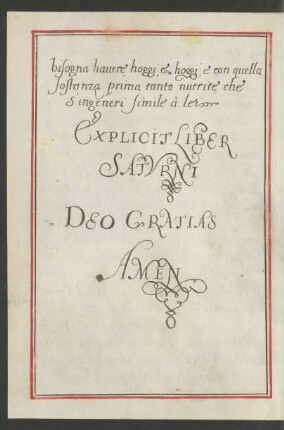 bisogna havere hoggi, & hoggi e con quella
sostanza prima tanto nutrite che
s'ingeneri simile à lei
EXPLICIT LIBER
SATVRNI
DEO GRATIAS
AMEN